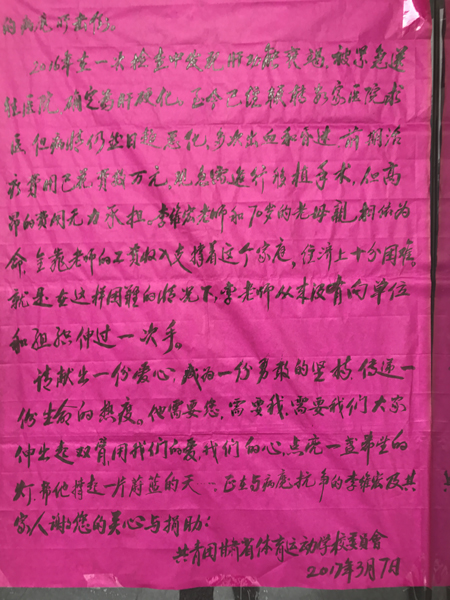 的病危所牵布。
2016年在一次检查中发现肝功能衰竭，被紧急送
往医院，确定为肝硬化。至今已辗转多家医院求
医，但病情仍然日趋恶化，多次出血和昏迷，前期治
疗费用已花费数万元，现急需进行移植手术，但高
昂的费用无力承担。李维宏老师和70岁的老母亲相依为
命，全靠老师的工资收入支撑着这个家庭，经济上十分困难。
就是在这样困难的情况下，李老师从来没有向单位
和组织伸过一次手。
请献出一份爱心，成为一份勇敢的坚持，传递一
份生命的热度。他需要您，需要我，需要我们大家
伸出起双臂，用我们的爱，我们的心，点亮一盏希望的
灯，帮他撑起一片蔚蓝的天。正在与病魔抗争的李维宏及其
家人谢谢您的关心与捐助！
共青团甘肃省体育运动学校委员會
2017年3月7日